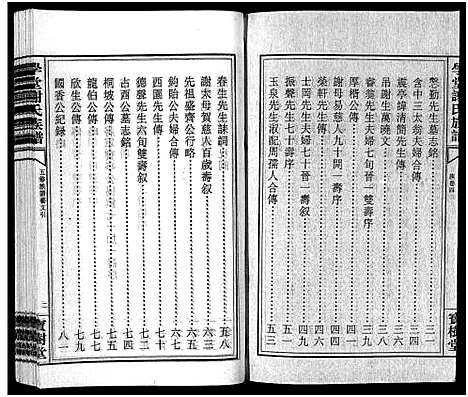 學堂謝氏族譜
慤勤先生墓志銘
三一
含中三太翁夫婦合傳
三三
震亭緯清簡先生傳
三五
吊謝生萬曉文
三七
睿翁先生夫婦七旬晉一雙壽序
三九
謝母易慈人九十開一壽序
四一
榮軒先生夫婦合傳
四四
士岡先生夫婦七十晉一雙壽序
四七
振聲先生七十壽序
四九
玉泉先生淑配周孺人合傳
五三
寶樹堂
學堂謝氏族譜
春生先生誄詞
五八
謝太母賀慈人百歲壽叙
六三
先祖盛齊公行略
六五
鈞貽公夫婦合傳
六七
西園先生傳
六九
德聲先生六旬雙壽叙
七一
古酉公墓志銘
七四
桐坡公傳
七五
龍伯公傳
七七
欣生公傳
七九
國香公紀録
八一
寶樹堂